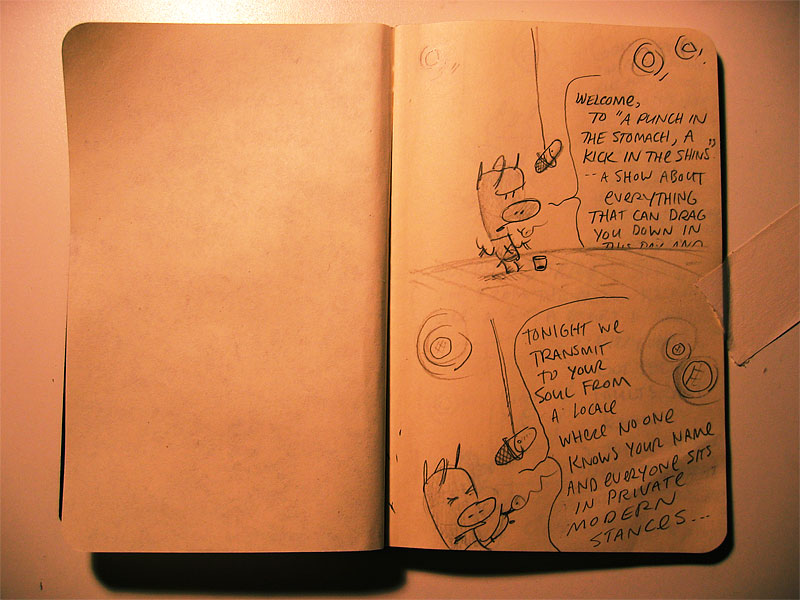 WELCOME,
TO "A PUNCH IN
THE STOMACH, A
KICK IN THE SHINS"
-- A SHOW ABOUT
EVERYTHING
THAT CAN DRAG
YOU DOWN IN
THIS DAY AND
TONIGHT WE
TRANSMIT
TO YOUR
SOUL FROM
A LOCALE
WHERE NO ONE
KNOWS YOUR NAME
AND EVERYONE SITS
IN PRIVATE
MODERN
STANCES...